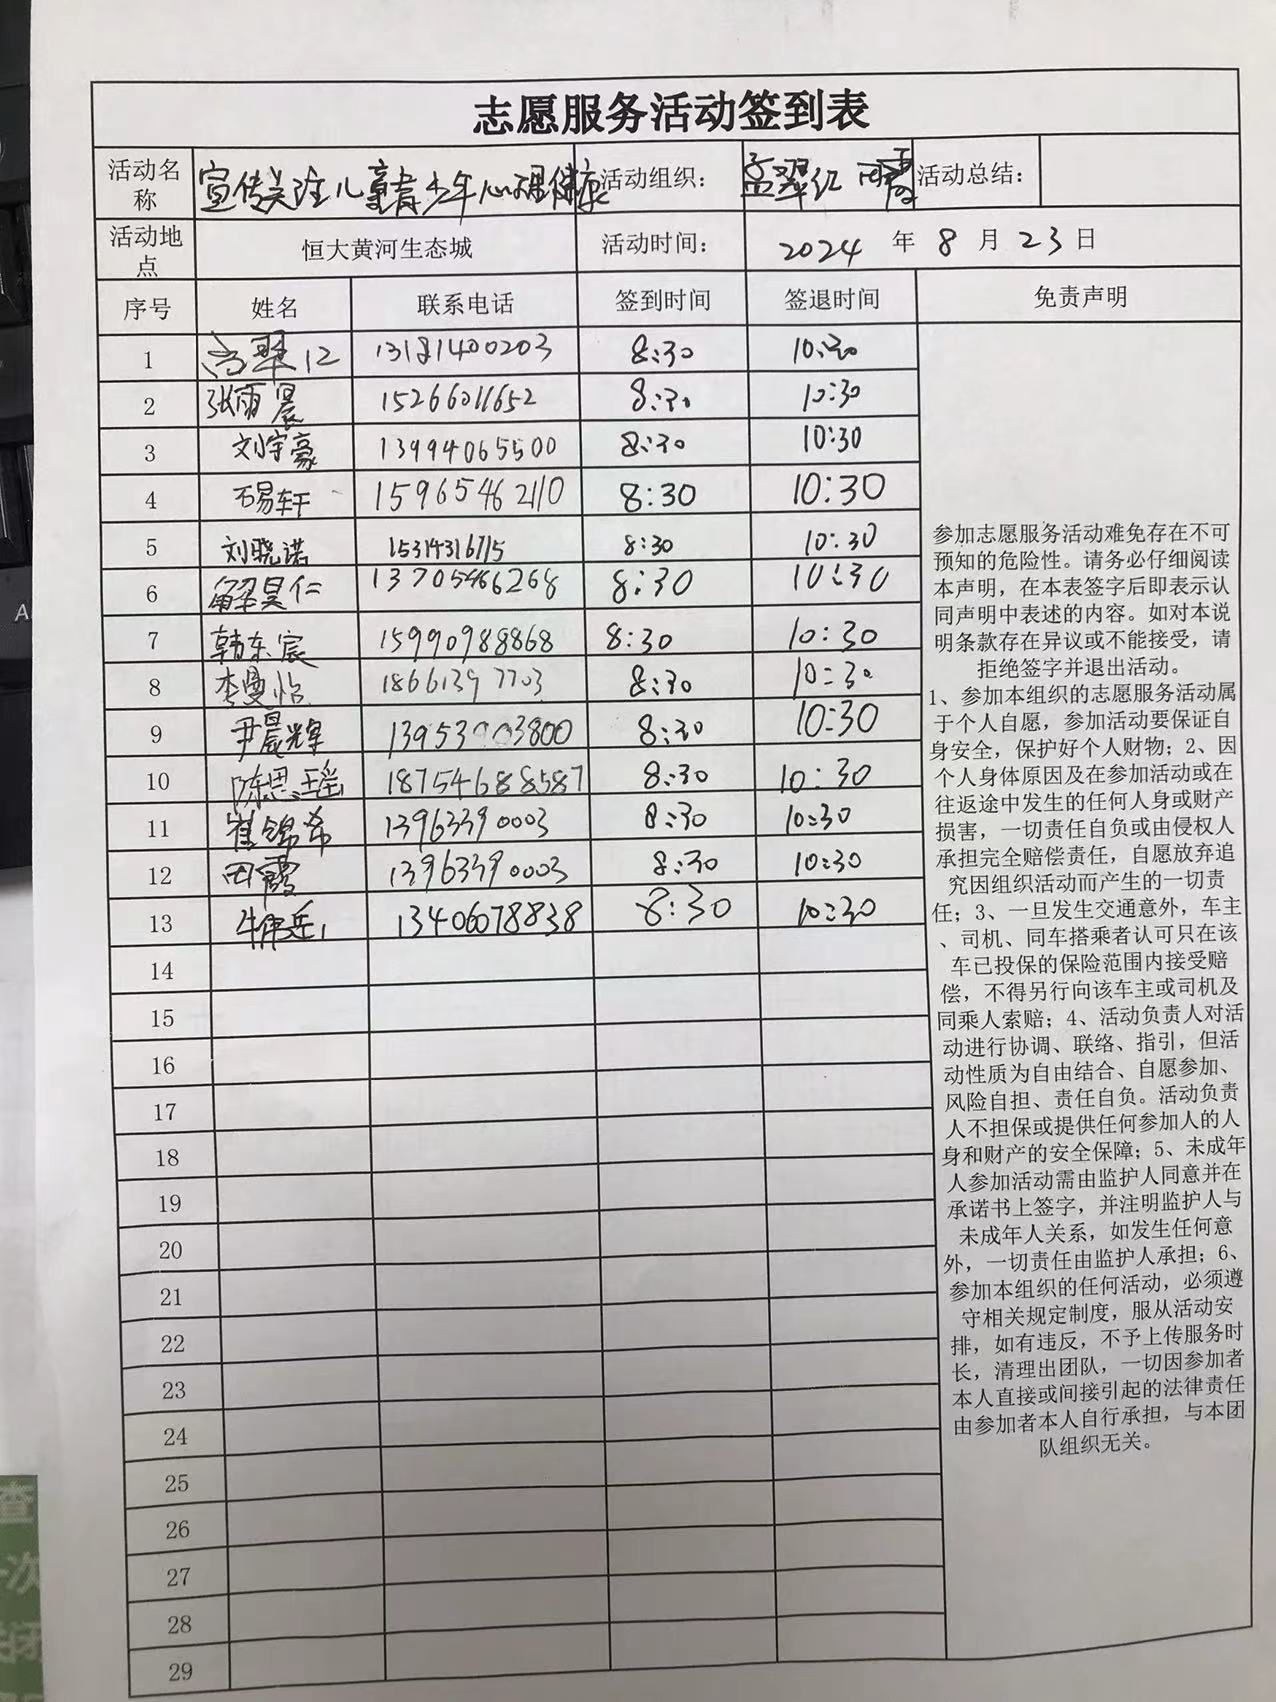 志愿服务活动签到表
活动名称 宣传关注儿童青少年心理健康 活动组织： 孟翠红 田霞 活动总结：
活动地点 恒大黄河生态城 活动时间： 2024 年 8 月 23 日
序号 姓名 联系电话 签到时间 签退时间 免责声明
1 13181400203 8:30 10:30
2 张雨晨 15266011652 8:30 10:30
3 刘宇豪 13994065500 8:30 10:30
4 石易轩 15965462110 8:30 10:30
5 刘晓诺 15314316715 8:30 10:30
6 解昊仁 13705466268 8:30 10:30
7 韩东宸 15990988868 8:30 10:30
8 李曼怡 18661397703 8:30 10:30
9 尹晨辉 13953903800 8:30 10:30
10 陈思瑶 18754688587 8:30 10:30
11 崔锦希 13963390003 8:30 10:30
12 田霞 13963390003 8:30 10:30
13 13406078838 8:30 10:30
14
15
16
17
18
19
20
21
22
23
24
25
26
27
28
29
参加志愿服务活动难免存在不可
预知的危险性。请务必仔细阅读
本声明，在本表签字后即表示认
同声明中表述的内容。如对本说
明条款存在异议或不能接受，请
拒绝签字并退出活动。
1、参加本组织的志愿服务活动属
于个人自愿，参加活动要保证自
身安全，保护好个人财物；2、因
个人身体原因及在参加活动或在
往返途中发生的任何人身或财产
损害，一切责任自负或由侵权人
承担完全赔偿责任，自愿放弃追
究因组织活动而产生的一切责
任；3、一旦发生交通意外，车主
、司机、同车搭乘者认可只在该
车已投保的保险范围内接受赔
偿，不得另行向该车主或司机及
同乘人索赔；4、活动负责人对活
动进行协调、联络、指引，但活
动性质为自由结合、自愿参加、
风险自担、责任自负。活动负责
人不担保或提供任何参加人的人
身和财产的安全保障；5、未成年
人参加活动需由监护人同意并在
承诺书上签字，并注明监护人与
未成年人关系，如发生任何意
外，一切责任由监护人承担；6、
参加本组织的任何活动，必须遵
守相关规定制度，服从活动安
排，如有违反，不予上传服务时
长，清理出团队，一切因参加者
本人直接或间接引起的法律责任
由参加者本人自行承担，与本团
队组织无关。
查
次